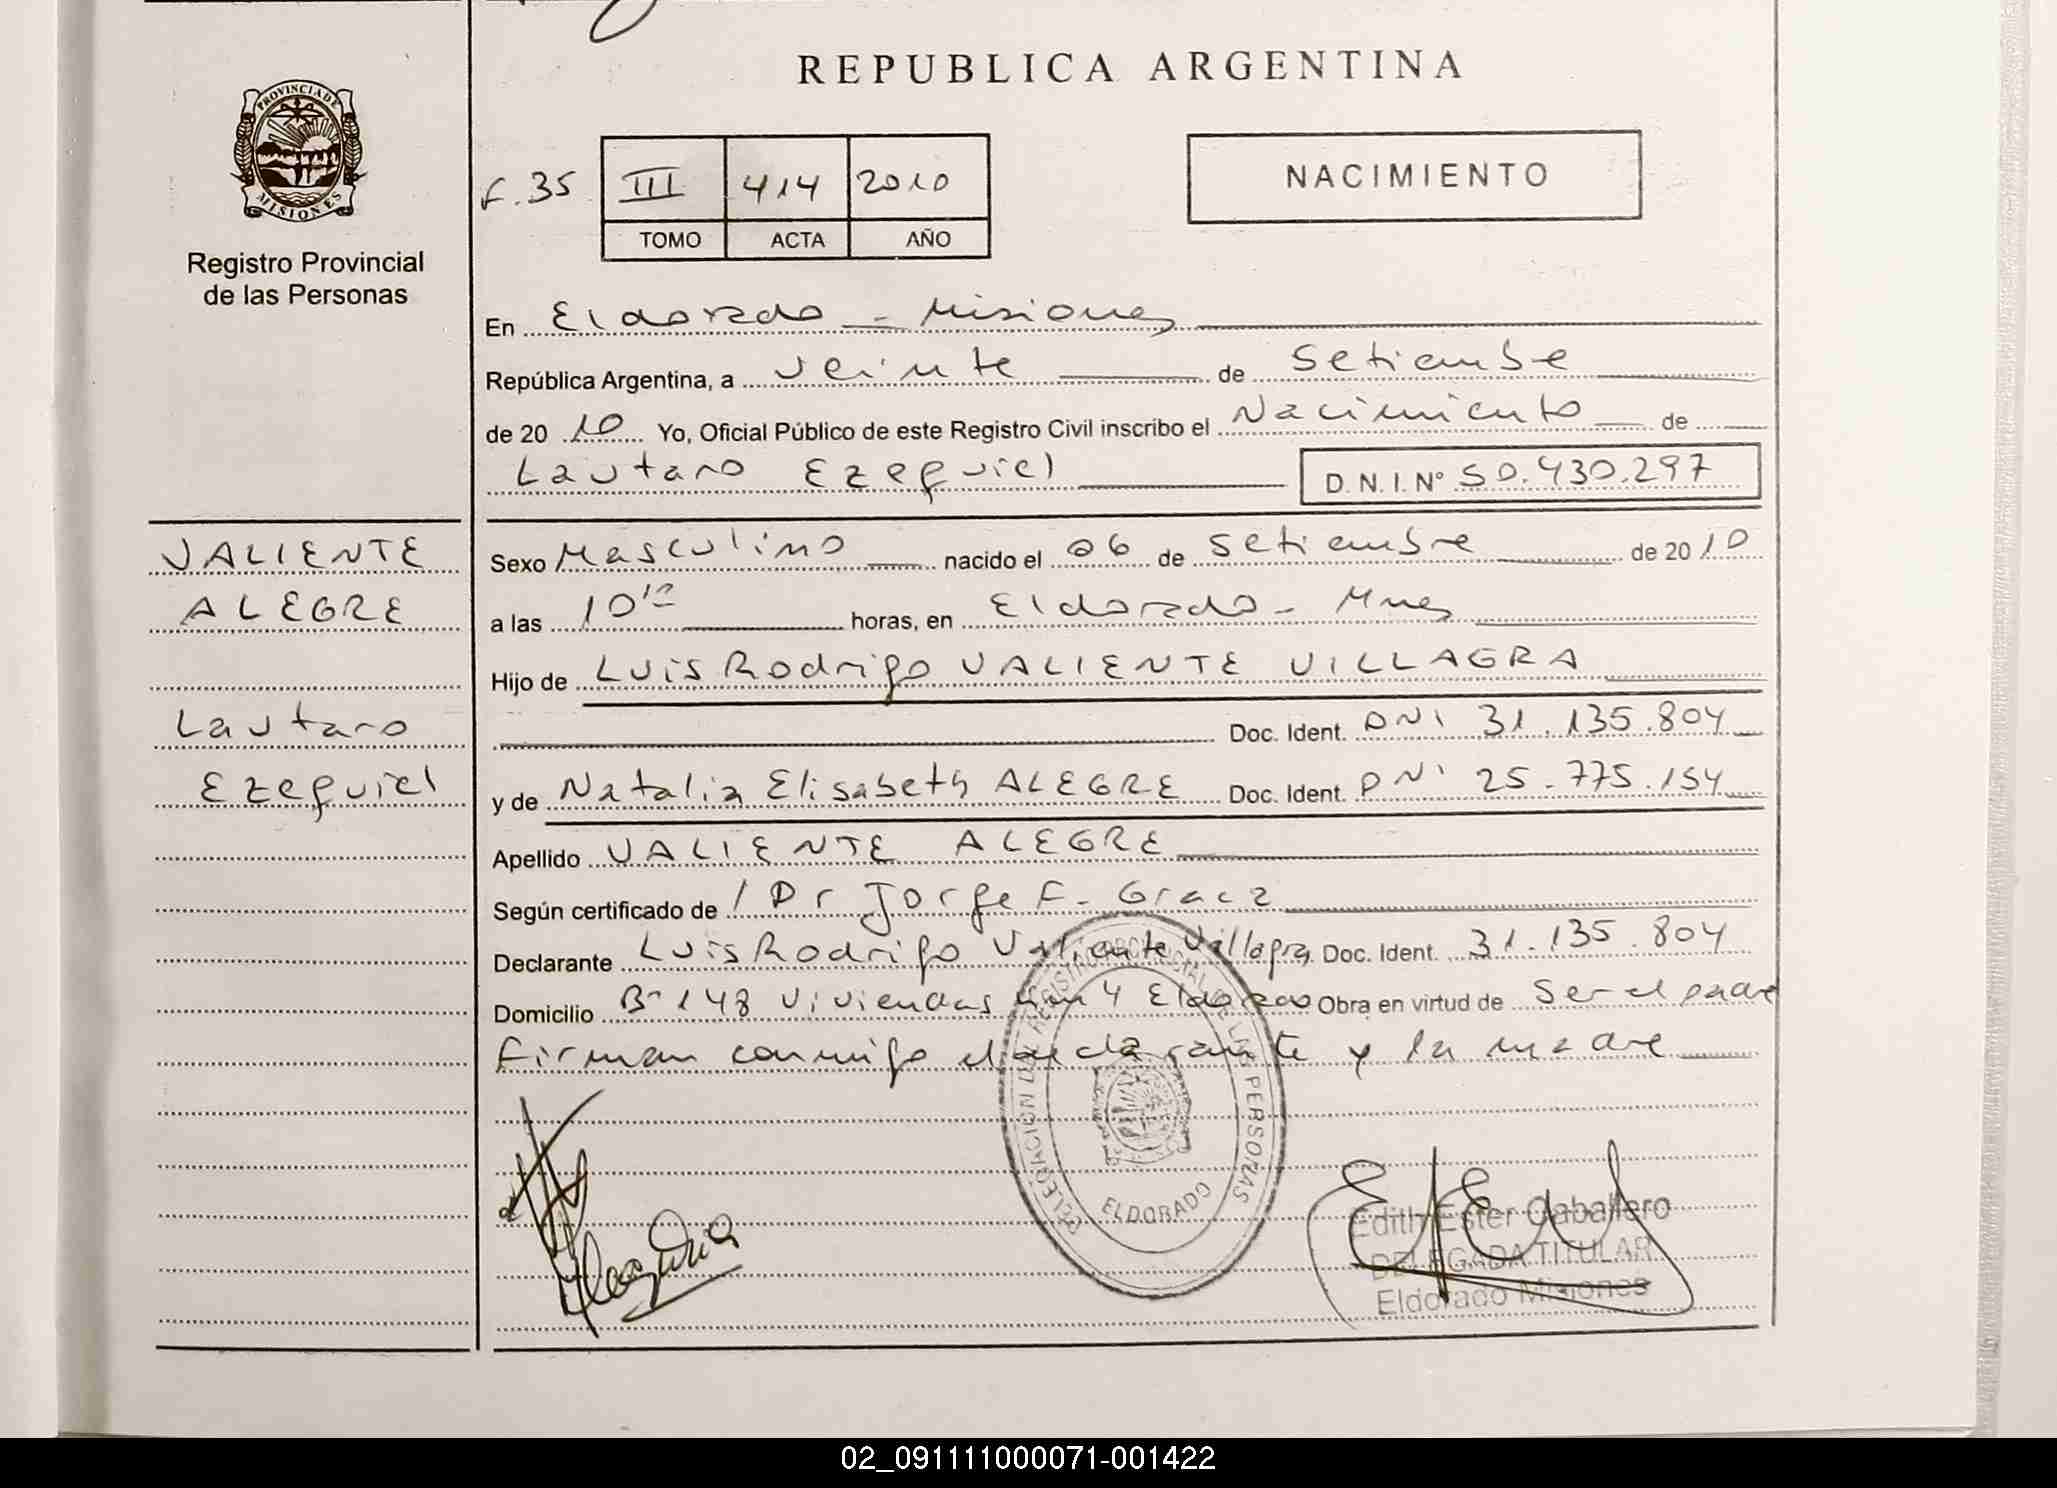 REPUBLICA ARGENTINA
PROVINCIA DE MISIONES
Registro Provincial
de las Personas
F. 35 III 414 2010
TOMO ACTA AÑO
NACIMIENTO
En Eldorado - Misiones
República Argentina, a veinte de Setiembre
de 2010 Yo, Oficial Público de este Registro Civil inscribo el Nacimiento de
Lautaro Ezequiel D.N.I. Nº 50.430.297
VALIENTE
ALEGRE
Lautaro
Ezequiel
Sexo Masculino nacido el 06 de Setiembre de 2010
a las 10 horas, en Eldorado - Mnes
Hijo de Luis Rodrigo VALIENTE VILLAGRA
Doc. Ident. DNI 31.135.804
y de Natalia Elisabeth ALEGRE Doc. Ident. DNI 25.775.154
Apellido VALIENTE ALEGRE
Según certificado de / Dr Jorge F. Graca
Declarante Luis Rodrigo Valiente Villagra Doc. Ident. 31.135.804
Domicilio Bº 148 Viviendas km 4 Eldorado Obra en virtud de Ser el padre
Firman conmigo el declarante y la madre
DELEGACION DEL REGISTRO PROVINCIAL DE LAS PERSONAS
ELDORADO
Edith Ester Caballero
DELEGADA TITULAR
Eldorado Misiones
02_091111000071-001422